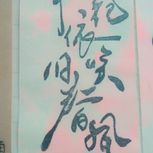 花依旧笑春風